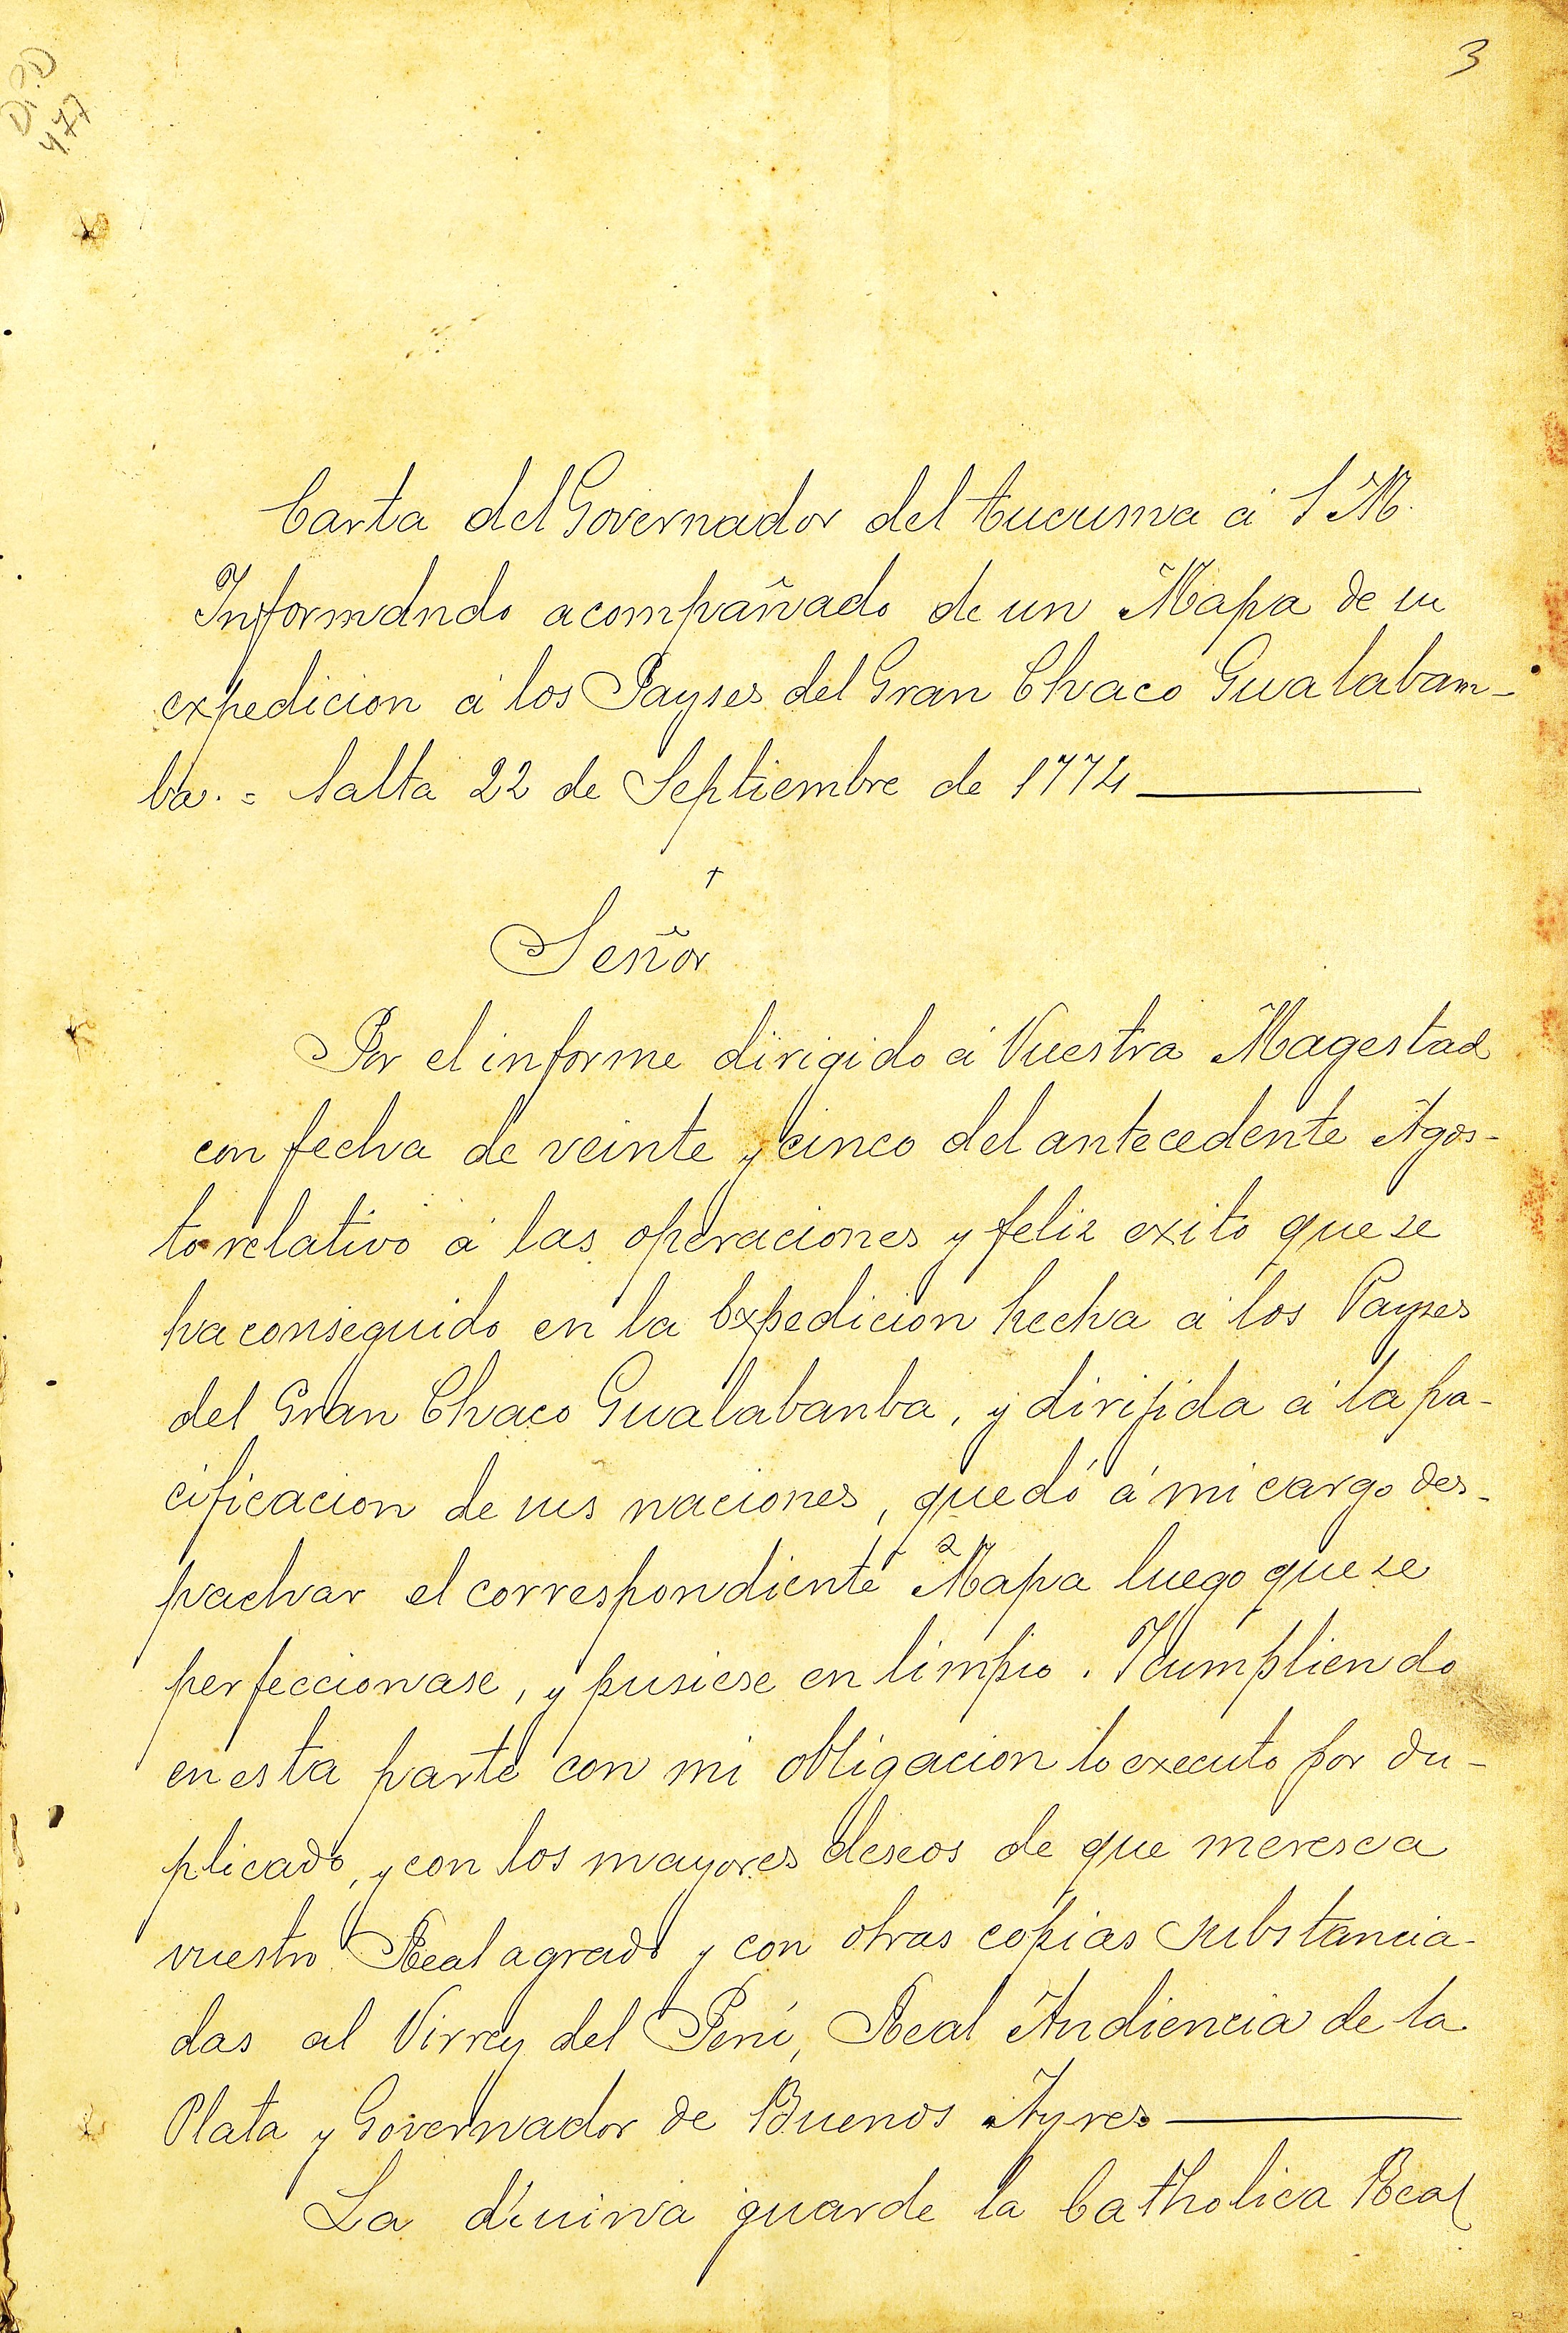 3
477
Carta del Governador del tucuma á S M.
Informando acompañado de un Mapa de su
expedicion á los Payses del Gran Chaco Gualabam-
ba. = Salta 22 de Septiembre de 1774
†
Señor
Por el informe dirigido á Vuestra Magestad
con fecha de veinte y cinco del antecedente Agos-
to relativo á las operaciones y feliz exito que se
ha conseguido en la Expedicion hecha á los Payses
del Gran Chaco Gualabanba, y dirijida á la pa-
cificacion de sus naciones, quedó á mi cargo des-
pachar el correspondiente Mapa luego que se
perfeccionase, y pusiese en limpio. Y cumpliendo
en esta parte con mi obligacion lo executo por du-
plicado, y con los mayores deseos de que meresca
vuestro Real agrado y con otras copias substancia-
das al Virrey del Perú, Real Audiencia de la
Plata y Governador de Buenos Ayres
La divina guarde la Catholica Real